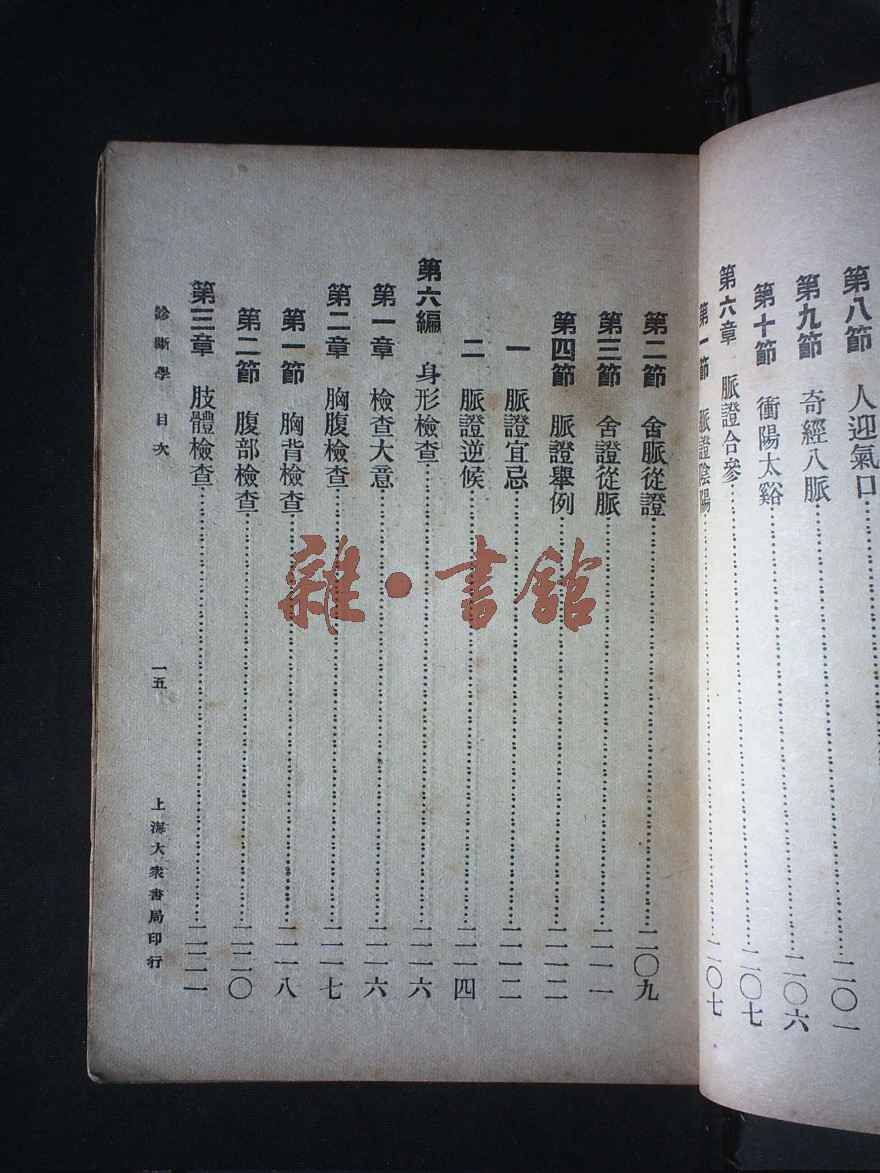 第八節 人迎氣口……二〇一
第九節 奇經八脈……二〇六
第十節 衝陽太谿……二〇七
第六章 脈證合參……二〇七
第一節 脈證陰陽
第二節 舍脈從證……二〇九
第三節 舍證從脈……二一一
第四節 脈證舉例……二一二
一 脈證宜忌……二一二
二 脈證逆候……二一四
第六編 身形檢查……二一六
第一章 檢查大意……二一六
第二章 胸腹檢查……二一七
第一節 胸背檢查……二一八
第二節 腹部檢查……二二〇
第三章 肢體檢查……二二一
診斷學 目次 一五 上海大衆書局印行
雜·書館